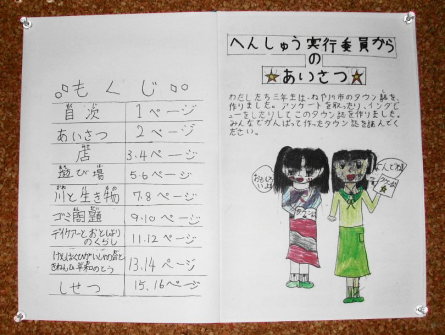 もくじ
目次 1ページ
あいさつ 2ページ
店 3.4ページ
遊び場 5.6ページ
川と生き物 7.8ページ
ゴミ問題 9.10ページ
デイケアーとおとしよりのくらし 11.12ページ
13.14ページ
しせつ 15.16ページ
へんしゅう実行委員から
の
★あいさつ★
わたしたち三年生は、ねや川市のタウン誌を
作りました。アンケートを取ったり、インタビ
ューをしたりしてこのタウン誌を作りました。
みんなでがんばって作ったタウン誌を読んでく
ださい。
おもしろいよ
よんでね